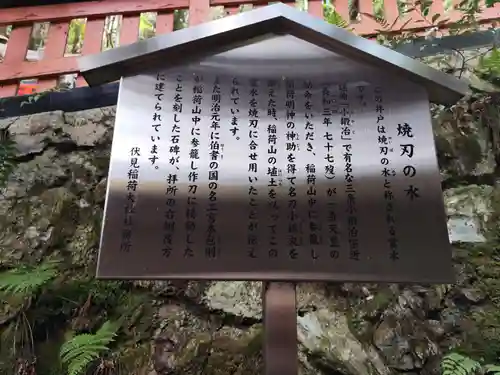 焼刃の水
この井戸は焼刃の水と称される霊水
です。
謡曲「小鍛冶」で有名な三条小鍛冶宗近
(長和三年 七十七歿)が一条天皇の
勅命をいただき、稲荷山中に参籠し
稲荷明神の神助を得て名刀小狐丸を
鍛えた時、稲荷山の埴土をもってこの
霊水を焼刃に合せ用いたことが伝え
られています。
また明治元年に伯耆の国の名工
が稲荷山中に参籠し作刀に精動した
ことを刻した石碑が、拝所の右側後方
に建てられています。
伏見稲荷大社社務所